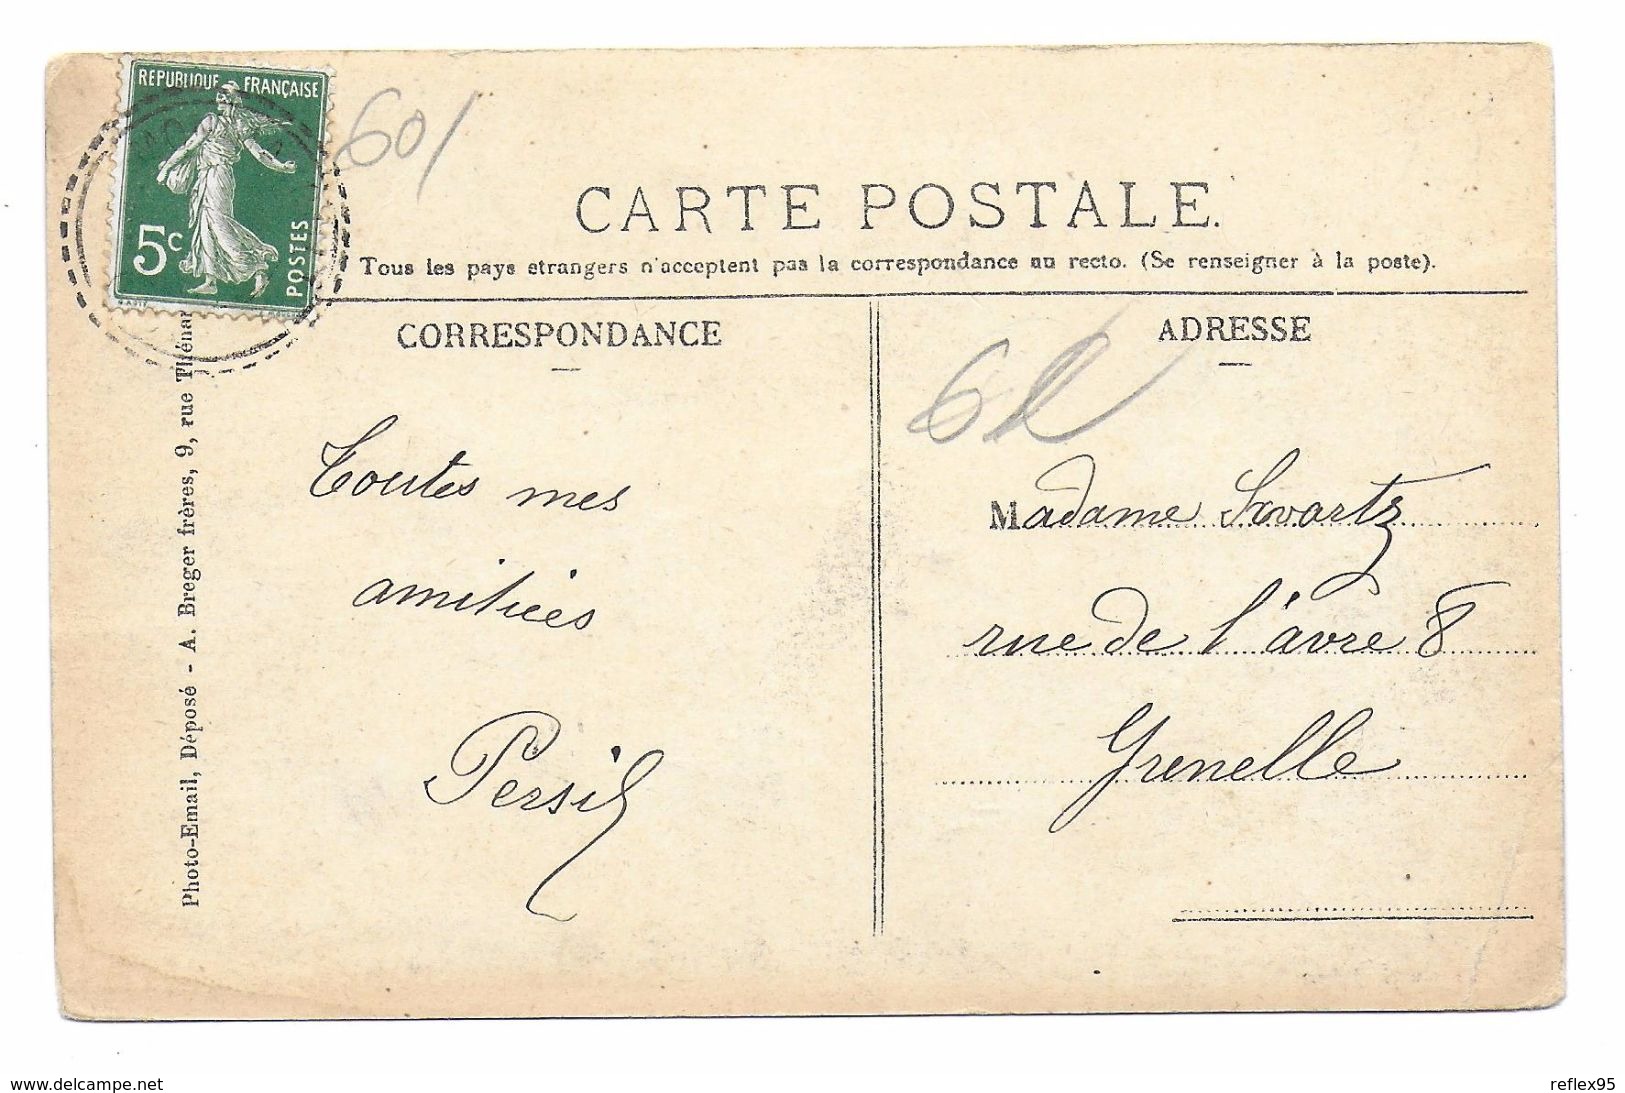 REPUBLIQUE FRANÇAISE
5c
POSTES
601
CARTE POSTALE.
Tous les pays etrangers n'acceptent pas la correspondance au recto. (Se renseigner à la poste).
CORRESPONDANCE
ADRESSE
Toutes mes
amitiées
Persil
Madame Swartz
rue de l'àvre 8
Grenelle
Photo-Email, Déposé - A. Breger frères, 9, rue Thénar
www.delcampe.net
reflex95